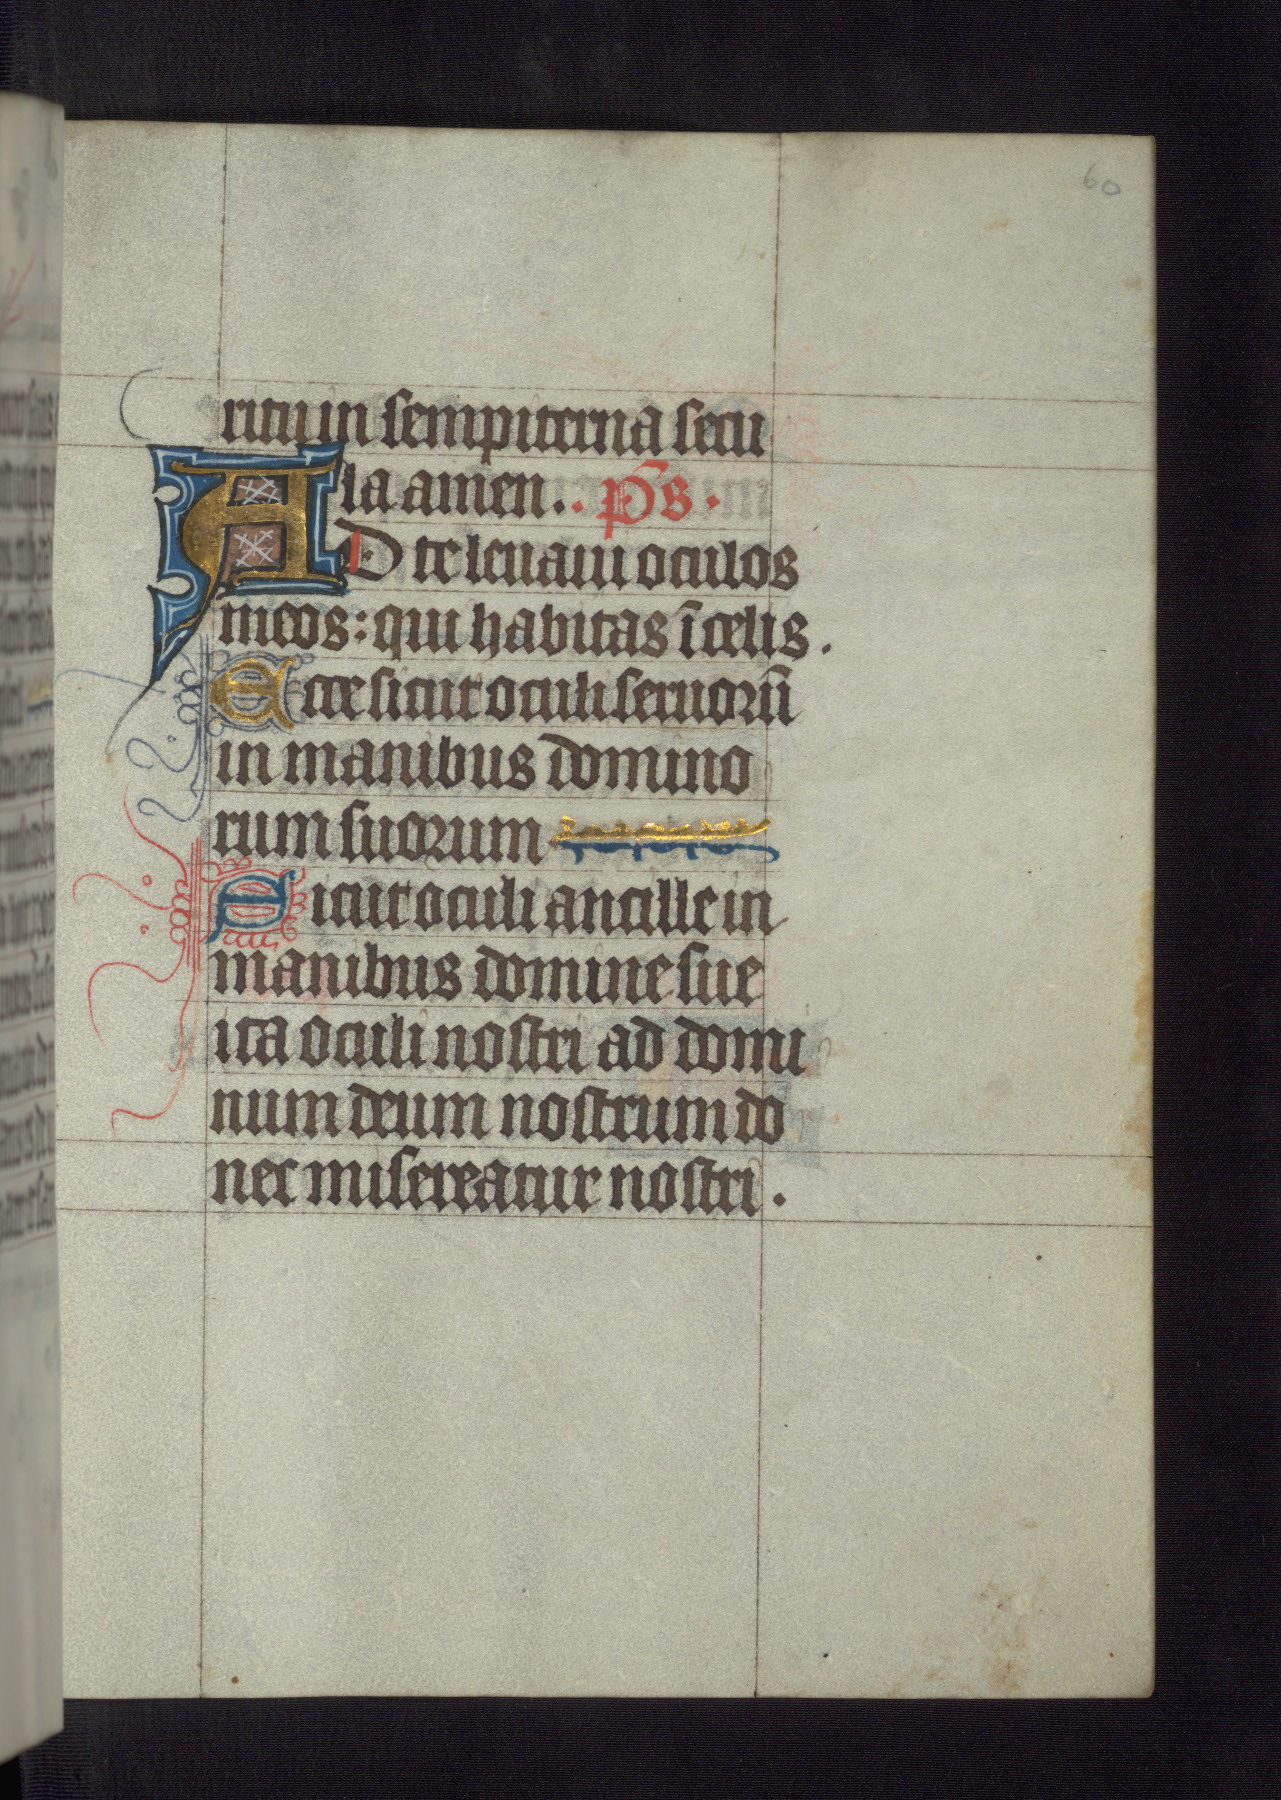 60
ritu in sempiterna secu
la amen. . p̄s .
AD te leuaui oculos
meos : qui habitas ī celis .
Ecce sicut oculi seruorū
in manibus domino
rum suorum
Sicut oculi ancille in
manibus domine sue
ita oculi nostri ad domi
num deum nostrum do
nec misereatur nostri .